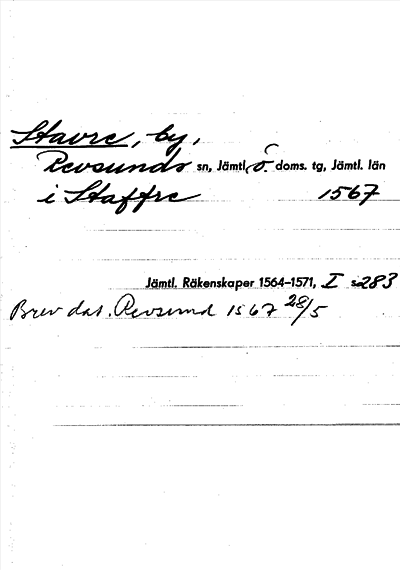 Stavre, by,
Revsunds sn, Jämtl. ö. doms. tg, Jämtl. län
i Staffre 1567
Jämtl. Räkenskaper 1564-1571, I s. 283
Brev dat. Revsund 1567 28/5